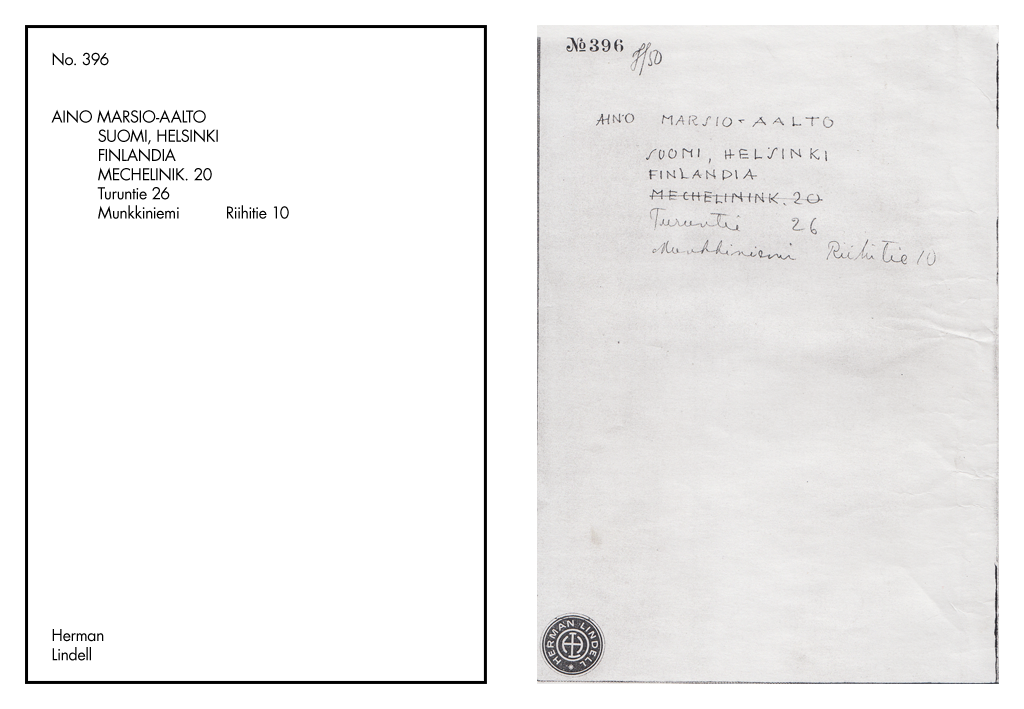 No. 396
AINO MARSIO-AALTO
SUOMI, HELSINKI
FINLANDIA
MECHELINIK. 20
Turuntie 26
Munkkiniemi Riihitie 10
Herman
Lindell
№ 396
AINO MARSIO-AALTO
SUOMI, HELSINKI
FINLANDIA
MECHELININK. 20
Turuntie 26
Munkkiniemi Riihitie 10
HERMAN LINDELL